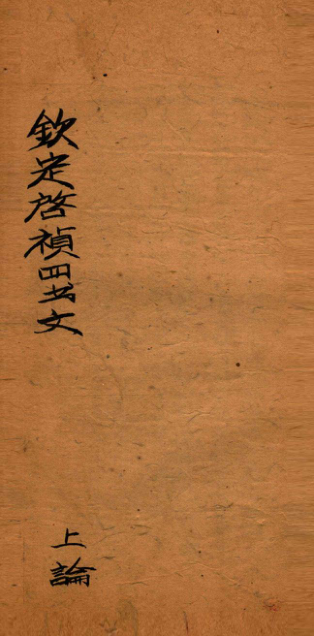 欽定啓禎四书文
上論